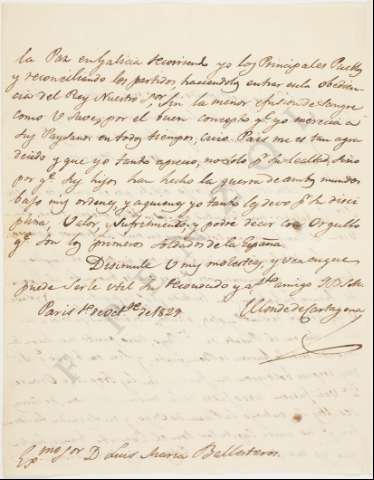 la Paz en Galicia recorriendo yo los Principales Pueblos
y reconciliando los partidos haciendolos entrar en la obedien-
cia del Rey Nuestro Sor, sin la menor efusion de Sangre
como V save, por el buen concepto qe yo merecia a
sus Paysanos en todos tiempos, cuio Pais me es tan agra-
decido y que yo tanto aprecio, no solo pr su lealtad, sino
por qe sus hijos han hecho la guerra de ambos mundos
bajo mis ordenes, y a quienes yo tanto les devo pr su disci-
plina, Valor, y Sufrimiento, y podré decir con Orgullo
qe son los primeros Soldados de la España
Disimule V mis molestias, y vea en que
puede serle util su reconocido y afto amigo
Paris 1o de Octbre de 1829
El Conde de Cartagena
Exmo Sor D Luis Maria Ballesteros